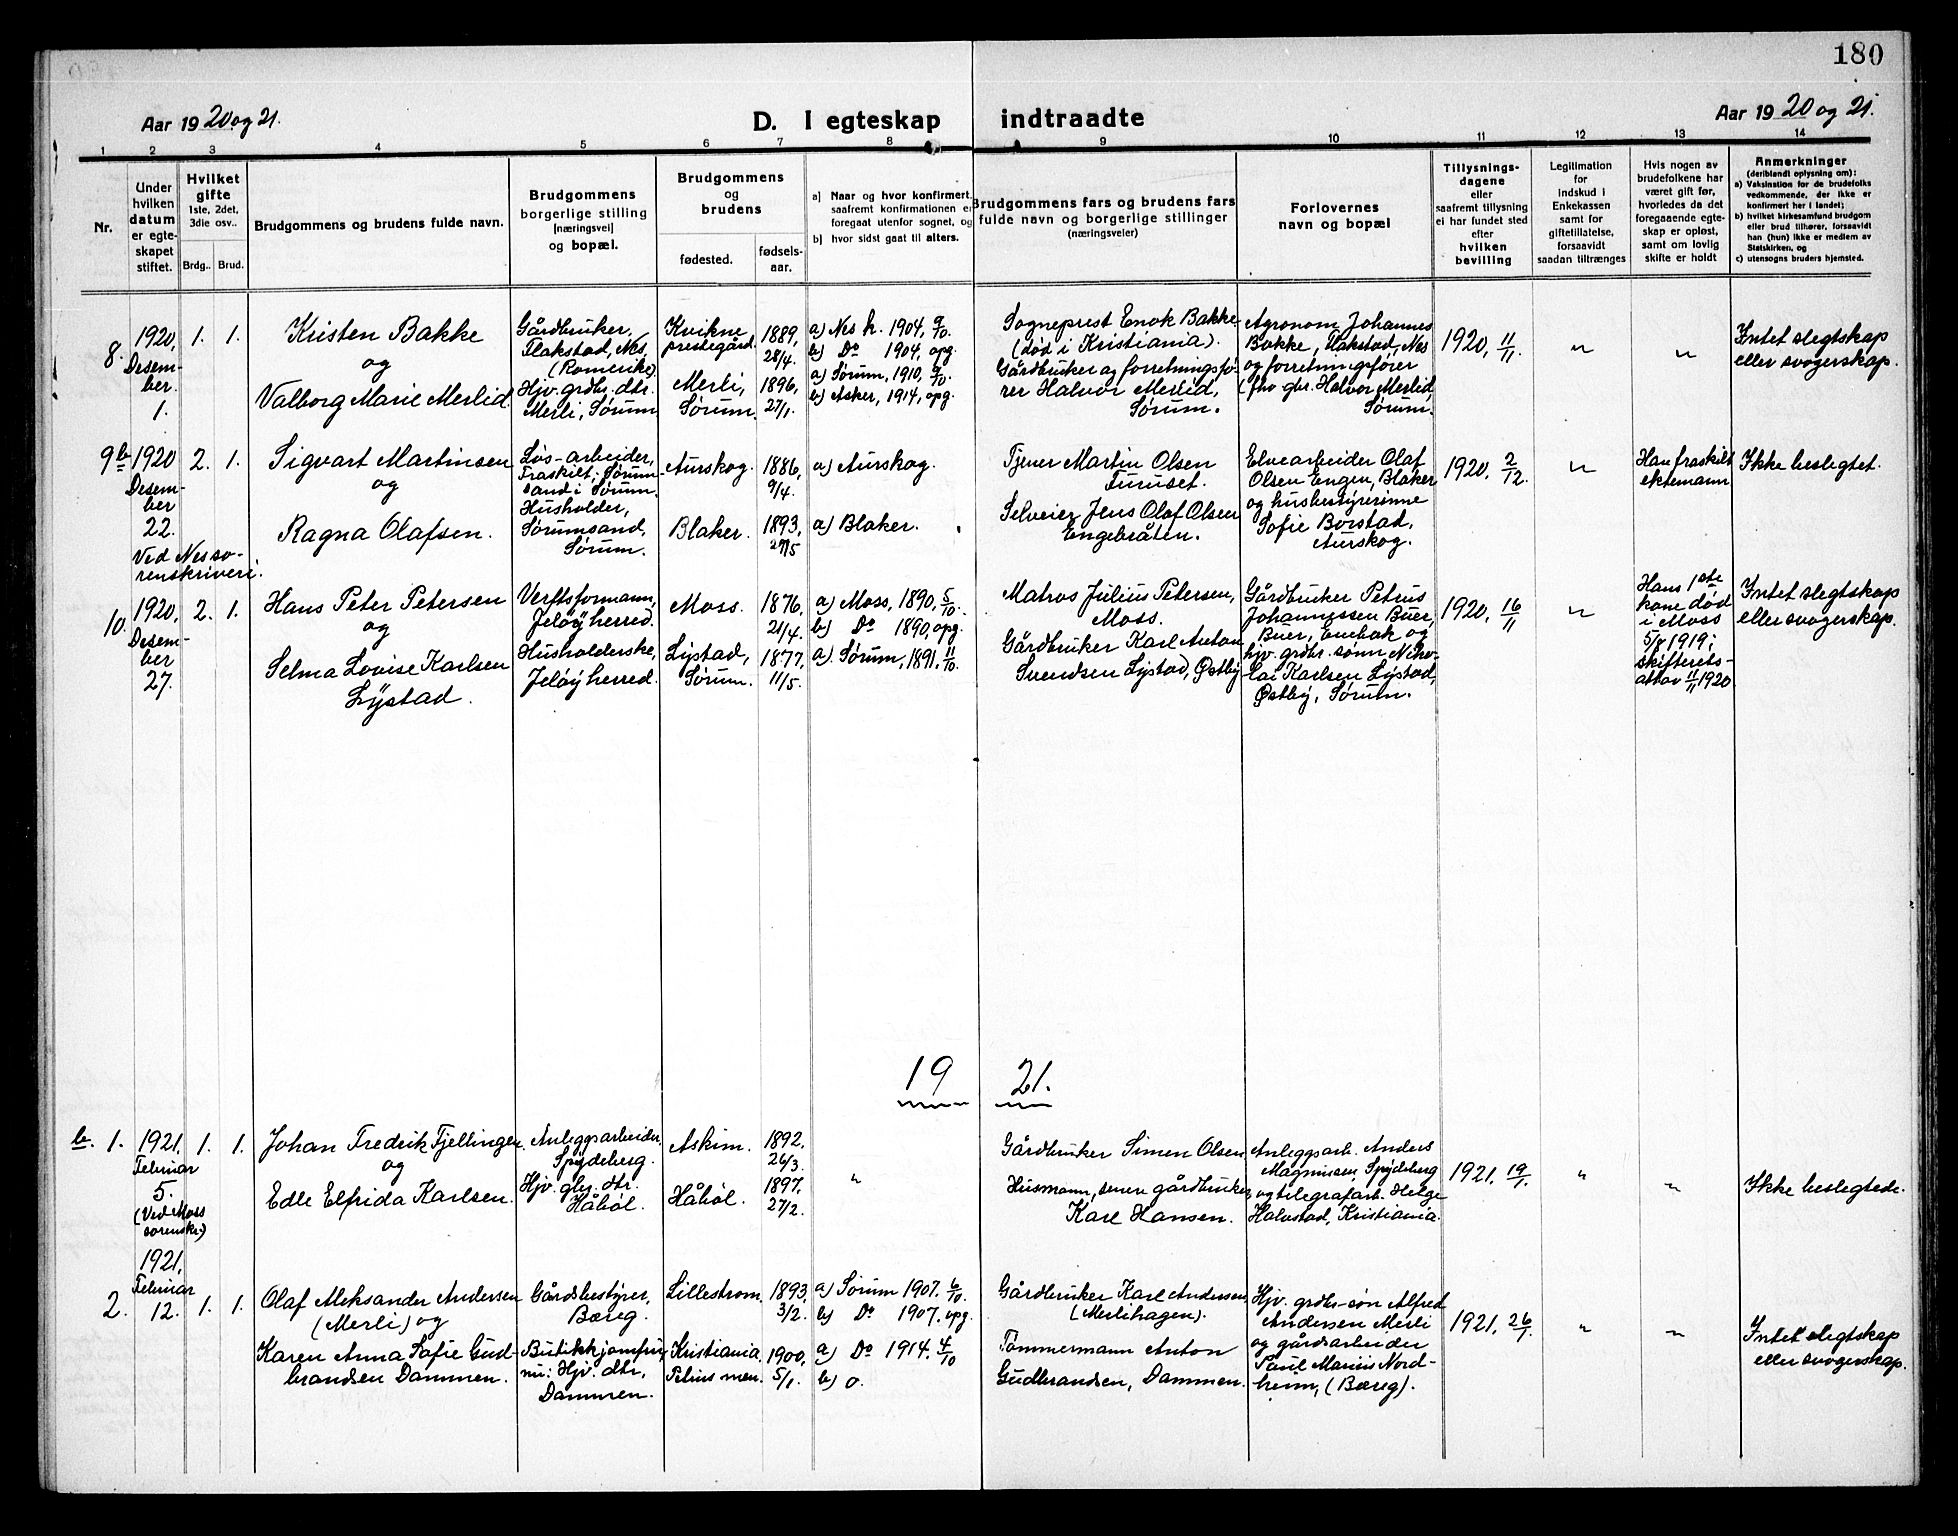 180
Aar 1920 og 21.
D. I egteskap indtraadte
Aar 1920 og 21.
1 2 3 4 5 6 7 8 9 10 11 12 13 14
Nr.
Under
hvilken
datum
er egte-
skapet
stiftet.
Hvilket
gifte
1ste, 2det,
3die osv..
Brdg.. Brud.
Brudgommens og brudens fulde navn.
Brudgommens
borgerlige stilling
[næringsvei]
og bopæl.
Brudgommens
og
brudens
fødested.
fødsels-
aar.
a) Naar og hvor konfirmert,
saafremt konfirmationen er
foregaat utenfor sognet, og
b) hvor sidst gaat til alters.
Brudgommens fars og brudens fars
fulde navn og borgerlige stillinger
(næringsveier)
Forlovernes
navn og bopæl
Tillysnings-
dagene
eller
saafremt tillysning
ei har fundet sted
efter
hvilken
bevilling
Legitimation
for
indskud i
Enkekassen
samt for
giftetillatelse,
forsaavidt
saadan tiltrænges
Hvis nogen av
brudefolkene har
været gift før,
hvorledes da det
foregaaende egte-
skap er opløst,
samt om lovlig
skifte er holdt
Anmerkninger
(deriblandt oplysning om):
a) Vaksination for de brudefolks
vedkommende, der ikke er
konfirmert her i landet;
b) hvilket kirkesamfund brudgom
eller brud tilhører, forsaavidt
han (hun) ikke er medlem av
Statskirken, og
c) utensogns bruders hjemsted.
8.
1920,
Desem-
ber
1.
1. 1.
Kristen Bakke
og
Valborg Marie Merlid.
Gårdbruker,
Flakstad, Nes,
(Romerike)
Hjv. grdbr. dtr.
Merli, Sørum
Kvikne
prestegård.
Merli,
Sørum.
1889,
28/4.
1896,
27/1.
a) Nes k. 1904, 9/10.
b) Do 1904, opg.
a) Sørum, 1910, 9/10.
b) Asker, 1914, opg.
Sogneprest Enok Bakke
(død i Kristiania).
Gårdbruker og forretningsfø-
rer Halvor Merlid,
Sørum.
Agronom Johannes
Bakke, Flakstad, Nes
og forretningsfører
(fho gbr. Halvor Merlid,
Sørum.
1920, 11/11.
"
"
Intet slegtskap
eller svogerskap.
9 b
1920
Desem-
ber
22.
Ved Nes so-
renskriveri.
2. 1.
Sigvart Martinsen
og
Ragna Olafsen.
Løs-arbeider,
Fraskilt; Sørum-
sand i Sørum.
Husholder,
Sørumsand,
Sørum.
Aurskog.
Blaker.
1886,
9/4.
1893,
27/5
a) Aurskog.
a) Blaker.
Tjener Martin Olsen
Furuset.
Selveier Jens Olaf Olsen
Engebråten.
Elvearbeider Olaf
Olsen Engen, Blaker
og husbestyrerinne
Sofie Borstad,
Aurskog.
1920, 2/12.
"
Han fraskilt
ektemann
Ikke beslegtet.
10.
1920,
Desem-
ber
27.
2. 1.
Hans Peter Petersen
og
Selma Lovise Karlsen
Lystad.
Verftsformann,
Jeløy herred.
Husholderske,
Jeløy herred.
Moss.
Lystad,
Sørum.
1876,
21/4.
1877,
11/5.
a) Moss, 1890, 5/10.
b) Do 1890, opg.
a. Sørum, 1891. 11/10.
Matros Julius Petersen,
Moss.
Gårdbruker Karl Anton
Svendsen Lystad, Østby
Gårdbruker Petrus
Johannessen Buer,
Buer, Enebak og
hjv. grdbr. sønn Niko-
lai Karlsen Lystad,
Østby, Sørum.
1920, 16/11
"
Hans 1ste
kone død
i Moss
1919;
skifterets-
attav 11/11 1920
Intet slegtskap
eller svogerskap.
1921.
b. 1.
1921.
Februar
5.
(Ved Moss
sorenskr.)
1. 1.
Johan Fredrik Fjellinger
og
Edle Elfrida Karlsen.
Anleggsarbeider,
Spydeberg.
Hjv. gbr. dtr.
Håbøl.
Askim.
Håbøl.
1892.
26/3.
1897.
27/2.
"
Gårdbruker Simen Olsen
Husmann, senere gårdbruker
Karl Hansen.
Anleggsarb. Anders
Magnussen, Spydeberg
og telegrafarb. Helge
Halvstad, Kristiania.
1921. 19/1.
"
"
Ikke beslegtede.
2.
1921,
Februar
12.
1. 1.
Olaf Aleksander Andersen
(Merli) og
Karen Anna Sofie Gud-
brandsen Dammen.
Gårdsbestyrer,
Bæreg.
Butikkjomfru,
nu: Hjv. dtr,
Dammen.
Lillestrøm.
Kristiania
1893,
3/2.
1900,
5/1.
a) Sørum 1907. 6/10.
b) Do 1907. opg.
a) Do 1914. 4/10
b) o.
Gårdbruker Karl Andersen,
(Merlihagen).
Tømmermann Anton
Gudbrandsen, Dammen.
Hjv. grdbr-søn Alfred
Andersen Merli
og gårdsarbeider
Paul Marius Nord-
heim, (Bæreg).
1921. 26/1.
"
"
Intet slegtskap
eller svogerskap.